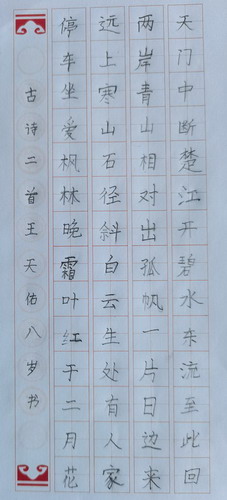 天门中断楚江开碧水东流至此回
两岸青山相对出孤帆一片日边来
远上寒山石径斜白云生处有人家
停车坐爱枫林晚霜叶红于二月花
古诗二首王天佑八岁书